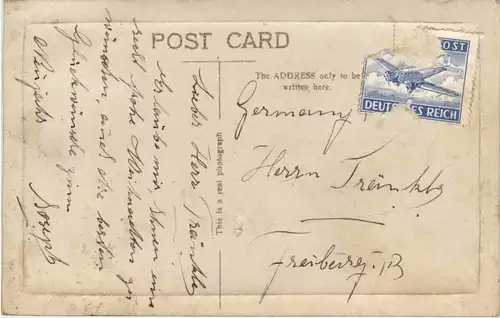 POST CARD
Lieber Herr Tränkle
erlaube mir, Ihnen eine
recht frohe Weihnachten zu
wünschen, und die besten
Glückwünsche zum
Neujahr
Joseph
This is a real photograph
The ADDRESS only to be
written here.
OST
DEUTSCHES REICH
Germany
Herrn Tränkle
Freiburg i. B